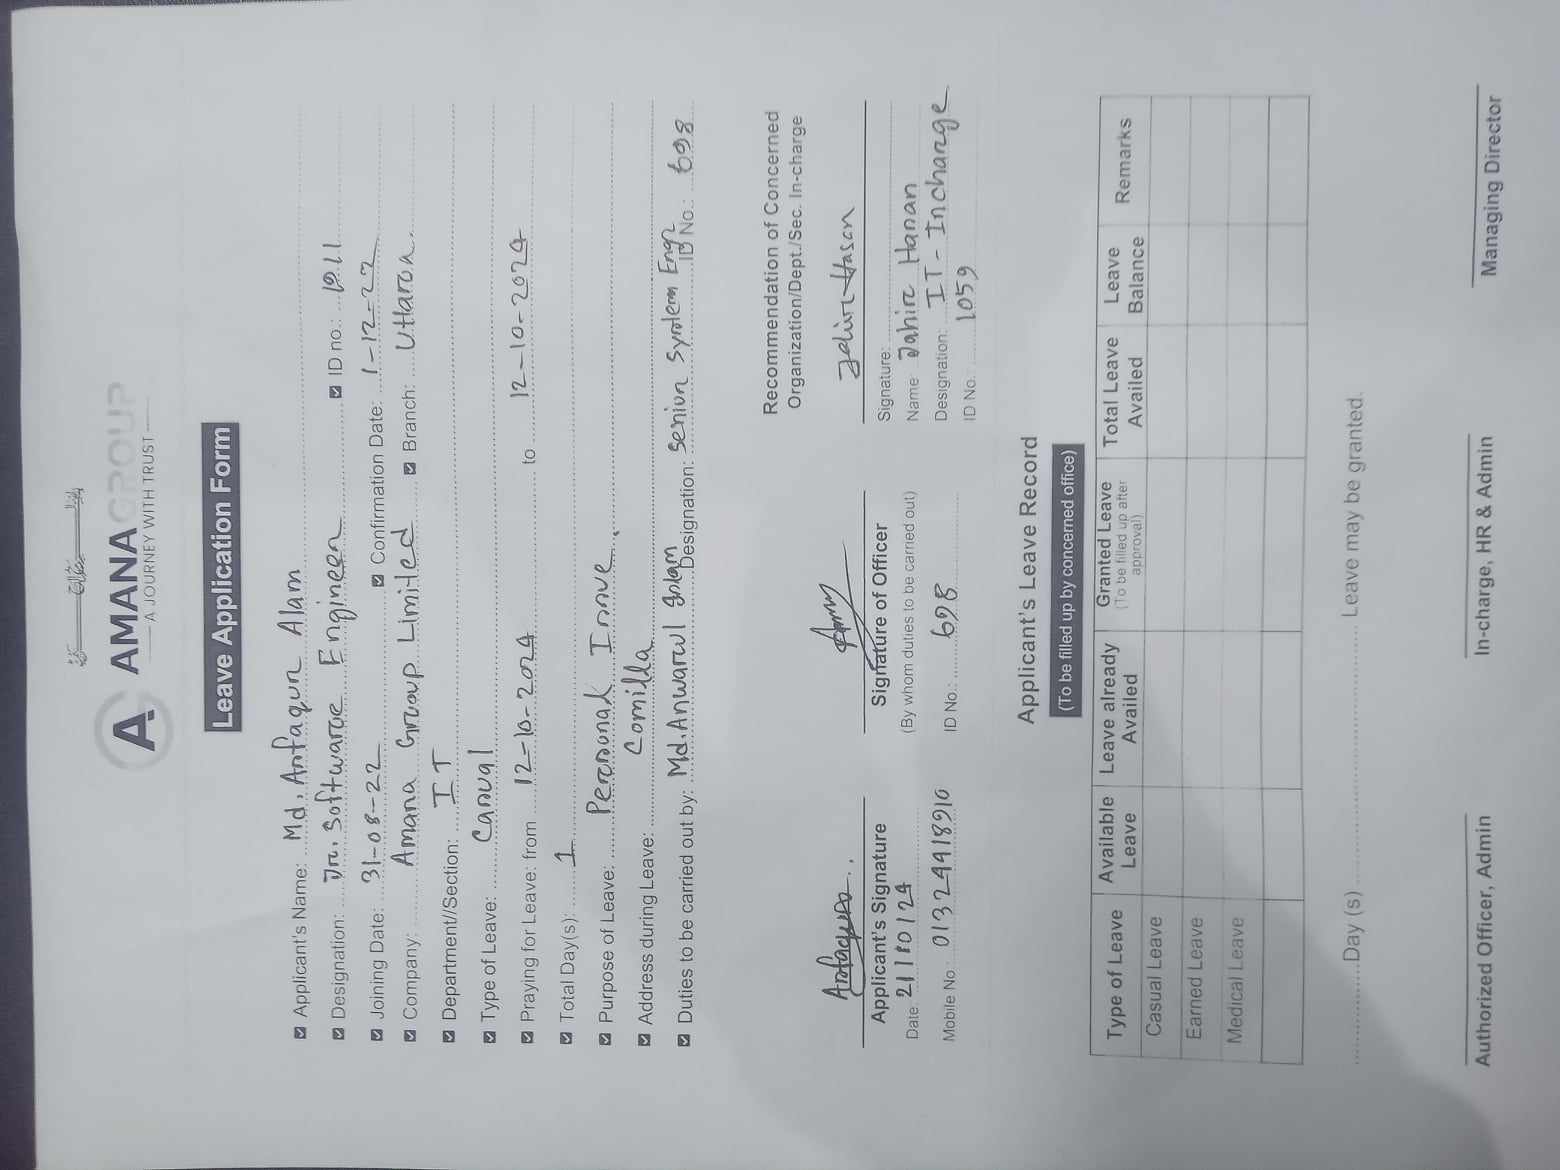 AMANA GROUP
A JOURNEY WITH TRUST
Leave Application Form
Applicant's Name: Md. Anfaqur Alam
Designation: Jr. Software Engineer ID no.: 1211
Joining Date: 31-08-22 Confirmation Date: 1-12-22
Company: Amana Group Limited Branch: Uttara.
Department//Section: IT
Type of Leave: Casual
Praying for Leave: from 12-10-2024 to 12-10-2024
Total Day(s): 1
Purpose of Leave: Personal Issue.
Address during Leave: Comilla
Duties to be carried out by: Md. Anwarul Islam Designation: Senior System Engr ID No.: 698
Recommendation of Concerned
Organization/Dept./Sec. In-charge
Jahir Hasan
Applicant's Signature
Signature of Officer
Signature:
Date 21/10/24
(By whom duties to be carried out)
Name Jahir Hasan
Mobile No.: 01324418910
ID No.: 698
Designation: IT-Incharge
ID No. 1059
Applicant's Leave Record
(To be filled up by concerned office)
Type of Leave Available Leave Leave already Availed Granted Leave (To be filled up after approval) Total Leave Availed Leave Balance Remarks
Casual Leave
Earned Leave
Medical Leave
................Day (s)........................................ Leave may be granted.
Authorized Officer, Admin In-charge, HR & Admin Managing Director